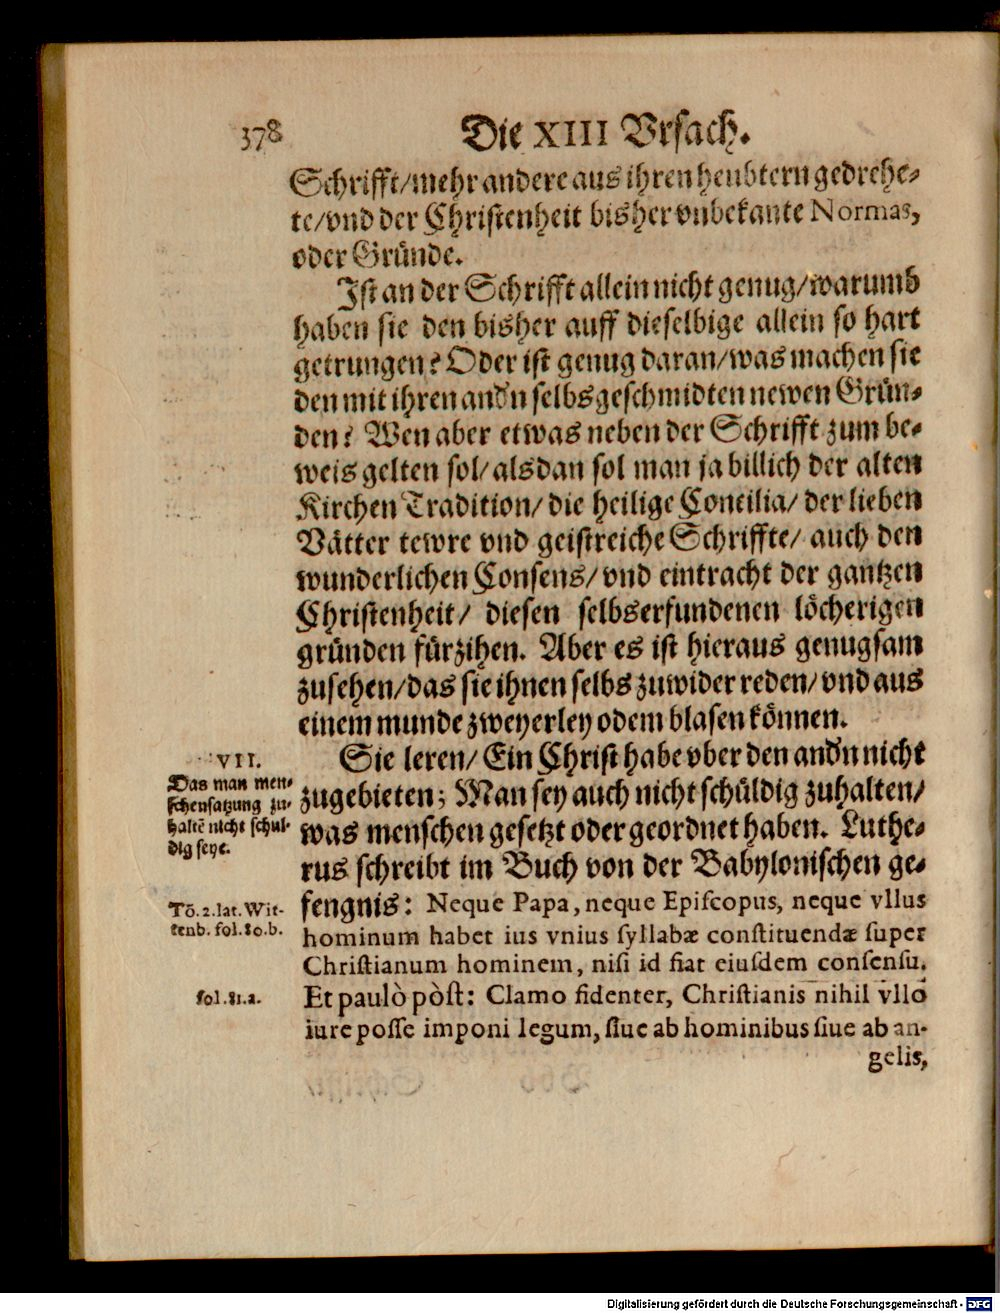 378 Die XIII Vrſach.
Schrifft/mehr andere aus ihren heubtern gedrehe-
te/vnd der Chriſtenheit bisher vnbekante Normas,
oder Gründe.
Iſt an der Schrifft allein nicht genug/warumb
haben ſie den bisher auff dieſelbige allein ſo hart
getrungen? Oder iſt genug daran/was machen ſie
den mit ihren andn ſelbs geſchmidten newen Grün-
den? Wen aber etwas neben der Schrifft zum be-
weis gelten ſol/alsdan ſol man ja billich der alten
Kirchen Tradition/die heilige Concilia/der lieben
Vätter tewre vnd geiſtreiche Schriffte/auch den
wunderlichen Conſens/vnd eintracht der gantzen
Chriſtenheit/dieſen ſelbserfundenen löcherigen
gründen fürzihen. Aber es iſt hieraus genugſam
zuſehen/das ſie ihnen ſelbs zuwider reden/vnd aus
einem munde zweyerley odem blaſen können.
VII.
Das man men-
ſchenſatzung zu-
haltē nicht ſchul-
dig ſeye.
Sie leren/Ein Chriſt habe vber den andn nicht
zugebieten; Man ſey auch nicht ſchüldig zuhalten/
was menſchen geſetzt oder geordnet haben. Luthe-
rus ſchreibt im Buch von der Babyloniſchen ge-
Tō. 2. lat. Wit-
tenb. fol. 80. b.
fengnis: Neque Papa, neque Epiſcopus, neque vllus
hominum habet ius vnius ſyllabæ conſtituendæ ſuper
Chriſtianum hominem, niſi id fiat eiuſdem conſenſu.
fol. 81. a.
Et paulò pòſt: Clamo fidenter, Chriſtianis nihil vllo
iure poſſe imponi legum, ſiue ab hominibus ſiue ab an-
gelis,
Digitalisierung gefördert durch die Deutsche Forschungsgemeinschaft - DFG